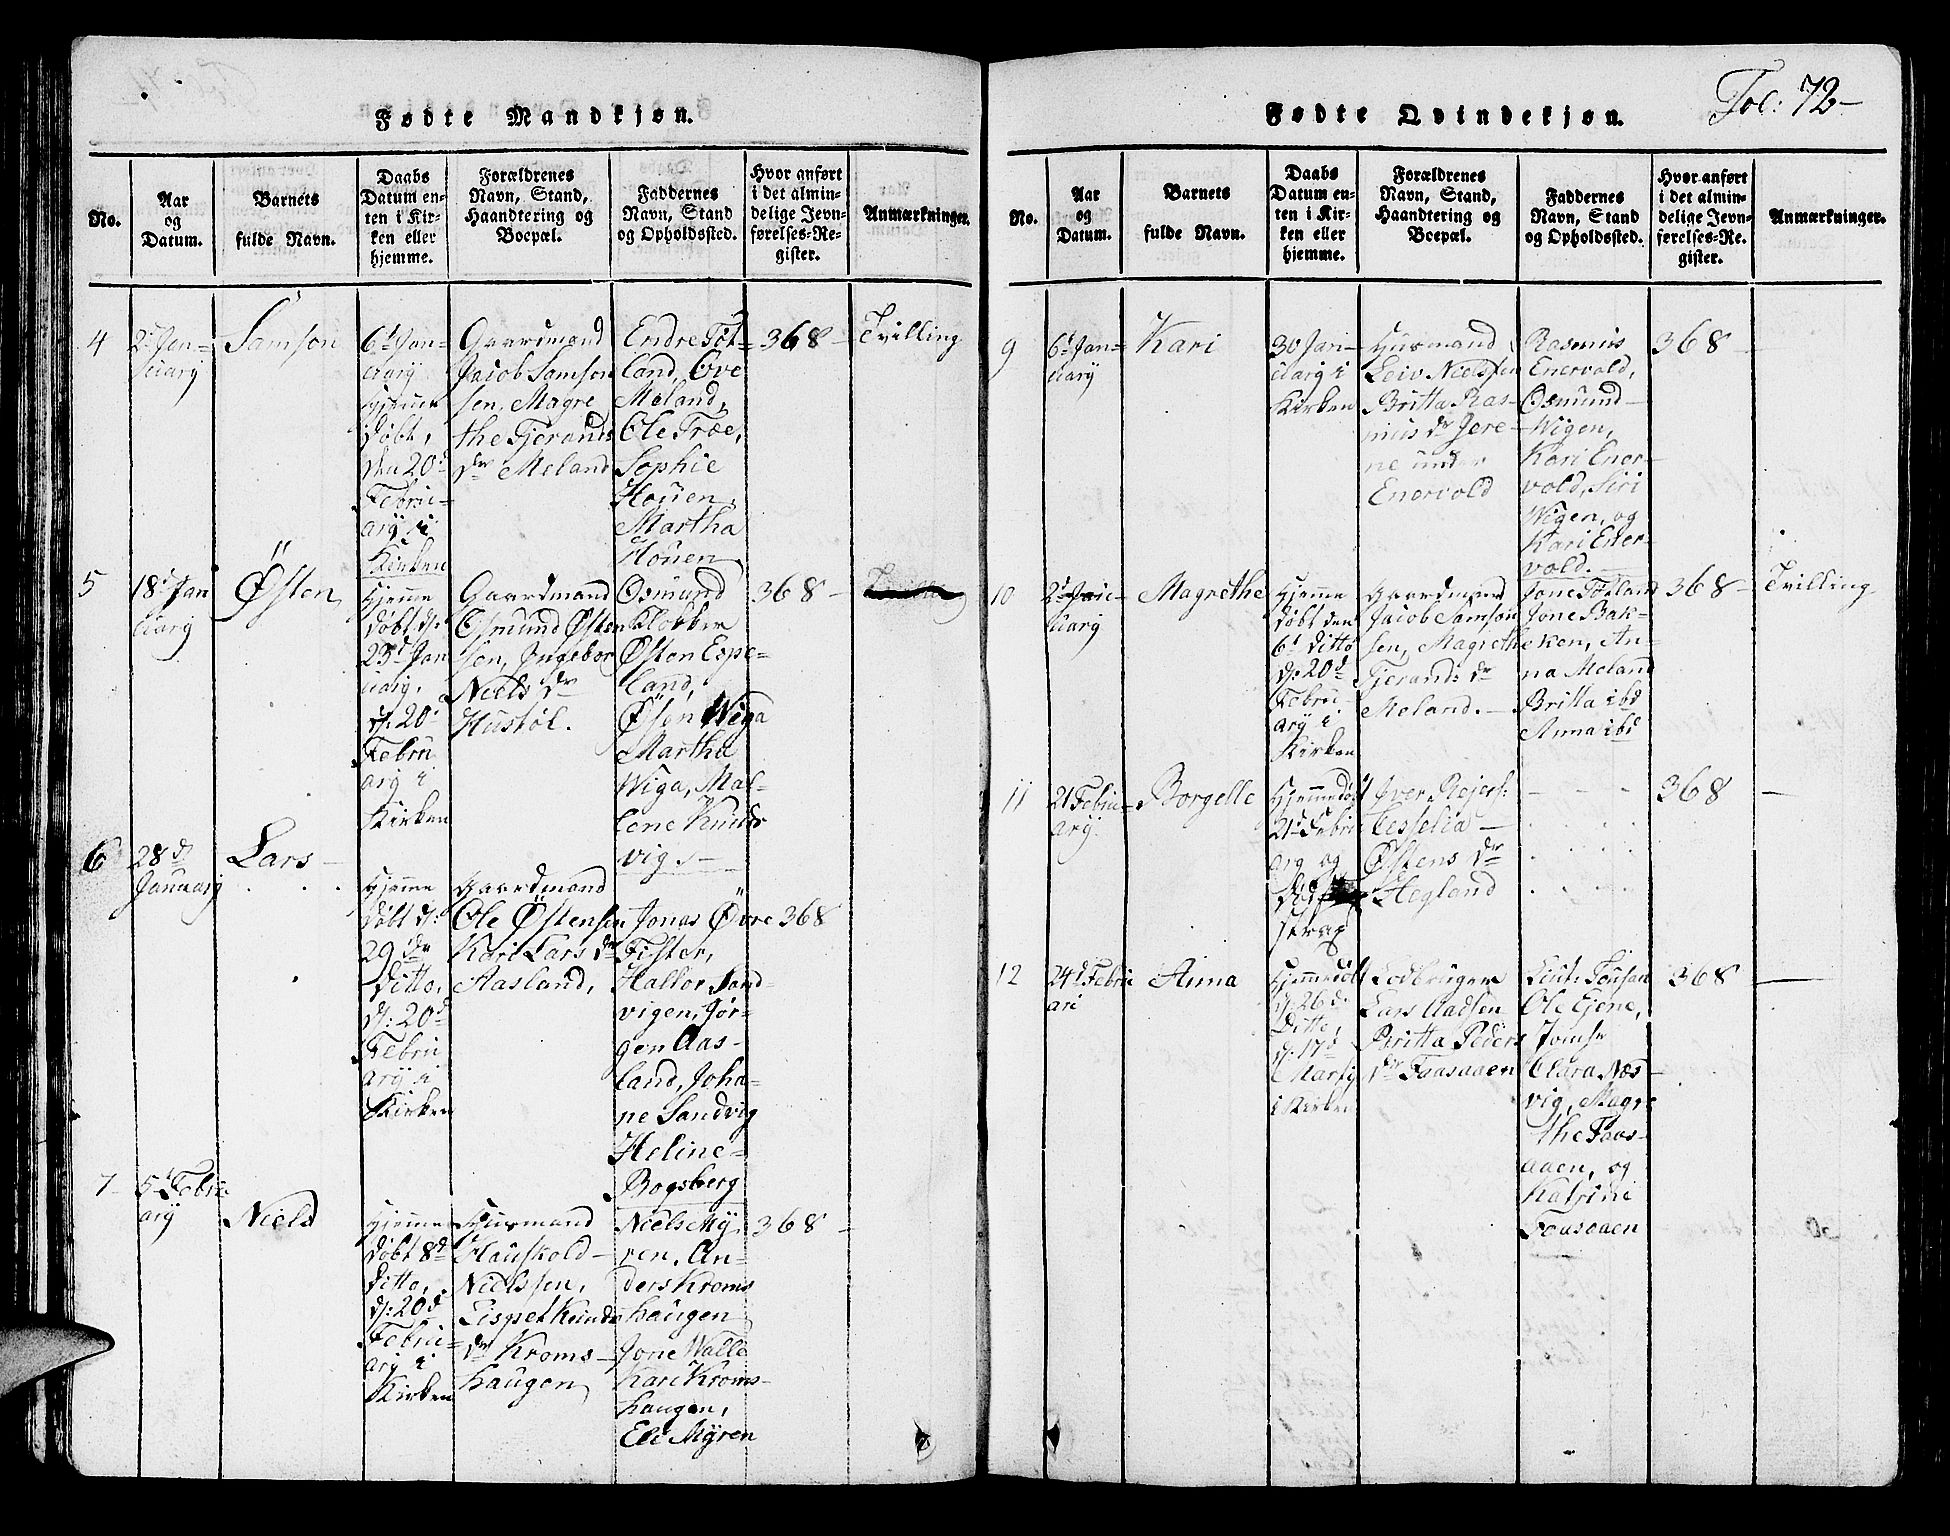 Fødte Mandkjøn.
No.
Aar
og
Datum.
Barnets
fulde Navn.
Daabs
Datum en-
ten i Kir-
ken eller
hjemme.
Forældrenes
Navn, Stand,
Haandtering og
Boepæl.
Faddernes
Navn, Stand
og Opholdssted.
Hvor anført
i det almin-
delige Jevn-
førelses-Re-
gister.
Anmærkninger.
4
2d Jan-
uarÿ
Samson
6d Jan-
uarÿ
hjemme
døbt,
den 20d
Febru-
arÿ i
Kirken
Gaardmand
Jacob Samson
sen, Magre
the Tjerands
dr Meland
Endre Tøt-
land, Ove
Meland,
Ole Træe,
Sophie
Houen,
Martha
Houen
368 -
Tvilling
5
18d Jan
uarÿ
Østen
hjemme
døbt d:
23d Jan
uarÿ,
d: 20d
Febru
arÿ i
Kirken
Gaardmand
Osmund Østen
sen, Ingebor
Niels dr
Hustøl.
Osmund
Klokker
Østen Espe-
land,
Østen Wiga
Martha
Wiga, Mal-
lene Knuds
vig. -
368 -
6
28d
Januarÿ
Lars -
hjemme
døbt d:
29de
Ditto,
d: 20d
Febru
arÿ i
Kirken
Gaardmand
Ole Østensen
Kari Lars dr
Aasland,
Jonas Øvre
Fister,
Hallor Sand-
vigen, Jør-
gen Aas-
land, Joha-
ne Sandvig
Heline-
Bogsberg
368
7
5d Febru-
arÿ
Niels
hjemme
døbt 8d
Ditto,
d: 20d
Febru-
arÿ i
Kirken
Husmand
Hauskold-
Nielssen,
Lispet Knuds
dr Kroms-
haugen
Niels Mÿ-
ren, An-
ders Kroms
haugen
Jone Walle
Kari Kroms-
haugen,
Eli Mÿren
368 -
Fødte Qvindekjøn.
Fol: 72-
No.
Aar
og
Datum.
Barnets
fulde Navn.
Daabs
Datum en-
ten i Kir-
ken eller
hjemme.
Forældrenes
Navn, Stand,
Haandtering og
Boepæl.
Faddernes
Navn, Stand
og Opholdssted.
Hvor anført
i det almin-
delige Jevn-
førelses-Re-
gister.
Anmærkninger.
9
6d Jan-
uarÿ
Kari
30 Jan-
uarÿ i
Kirken
Husmand
Leiv Nielssen
Britta Ras-
mus dr Jere-
ne under
Enervold
Rasmus
Enervold,
Osmund-
Wigen,
Kari Ener-
vold, Siri
Wigen, og
Kari Ener-
vold. -
368 -
10
2d Jan-
uarÿ
Magrethe
hjemme
døbt den
6d Ditto
d: 20d
Febru-
arÿ i
Kirken
Gaardmand
Jacob Samson
sen, Magrethe
Tjerand: dr
Meland. -
Jone Tøtland
Jone Bak-
ken, An-
na Meland
Britta ibd
Anna ibd
368 -
Tvilling
11
21 Febru-
arÿ
Borgelle
hjemmedøbt
21d Febru
arÿ og
død
strax
Iver Rejers:
Cesselia -
Østens dr
Hegland
368 -
12
24d Febru
ari
Anna
hjemmedøbt
d: 26d
Ditto,
d: 17d
Martÿ
i Kirken
Lodbruger
Lars Aadsen
Britta Peders
dr Faasaaen
Lieut: Tousan
Ole Ejene,
Jomfr
Clara Næs-
vig, Magre
the Faas-
aaen, og
Katrine
Faasaaen
368 -